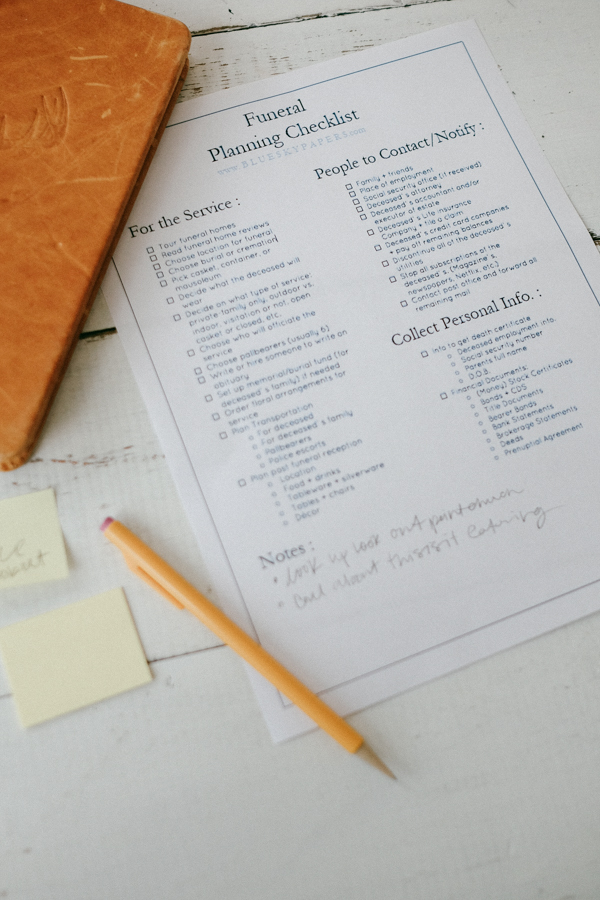 Funeral
Planning Checklist
www.BLUESKYPAPERS.com
For the Service :
Tour funeral homes
Read funeral home reviews
Choose location for funeral
Choose burial or cremation
Pick casket, container, or
mausoleum
Decide what the deceased will
wear
Decide on what type of service:
private family only, outdoor vs.
indoor, visitation or not, open
casket or closed, etc.
Choose who will officiate the
service
Choose pallbearers (usually 6)
Write or hire someone to write an
obituary
Set up memorial/burial fund (for
deceased's family) if needed
Order floral arrangements for
service
Plan Transportation
For deceased
For deceased's family
Pallbearers
Police escorts
Plan post funeral reception
Location
Food + drinks
Tableware + silverware
Tables + chairs
Décor
People to Contact/Notify :
Family + friends
Place of employment
Social security office (if received)
Deceased's attorney
Deceased's accountant and/or
executor of estate
Deceased's Life Insurance
Company + file a claim
Deceased's credit card companies
+ pay off remaining balances
Discontinue all of the deceased's
utilities
Stop all subscriptions of the
deceased's (Magazine's,
newspapers, Netflix, etc.)
Contact post office and forward all
remaining mail
Collect Personal Info. :
Info to get death certificate
Deceased employment info.
Social security number
Parents full name
D.O.B.
Financial Documents:
(Money) Stock Certificates
Bonds + CDS
Title Documents
Bearer Bonds
Bank Statements
Brokerage Statements
Deeds
Prenuptial Agreement
Notes :
• look up look out
• call about catering